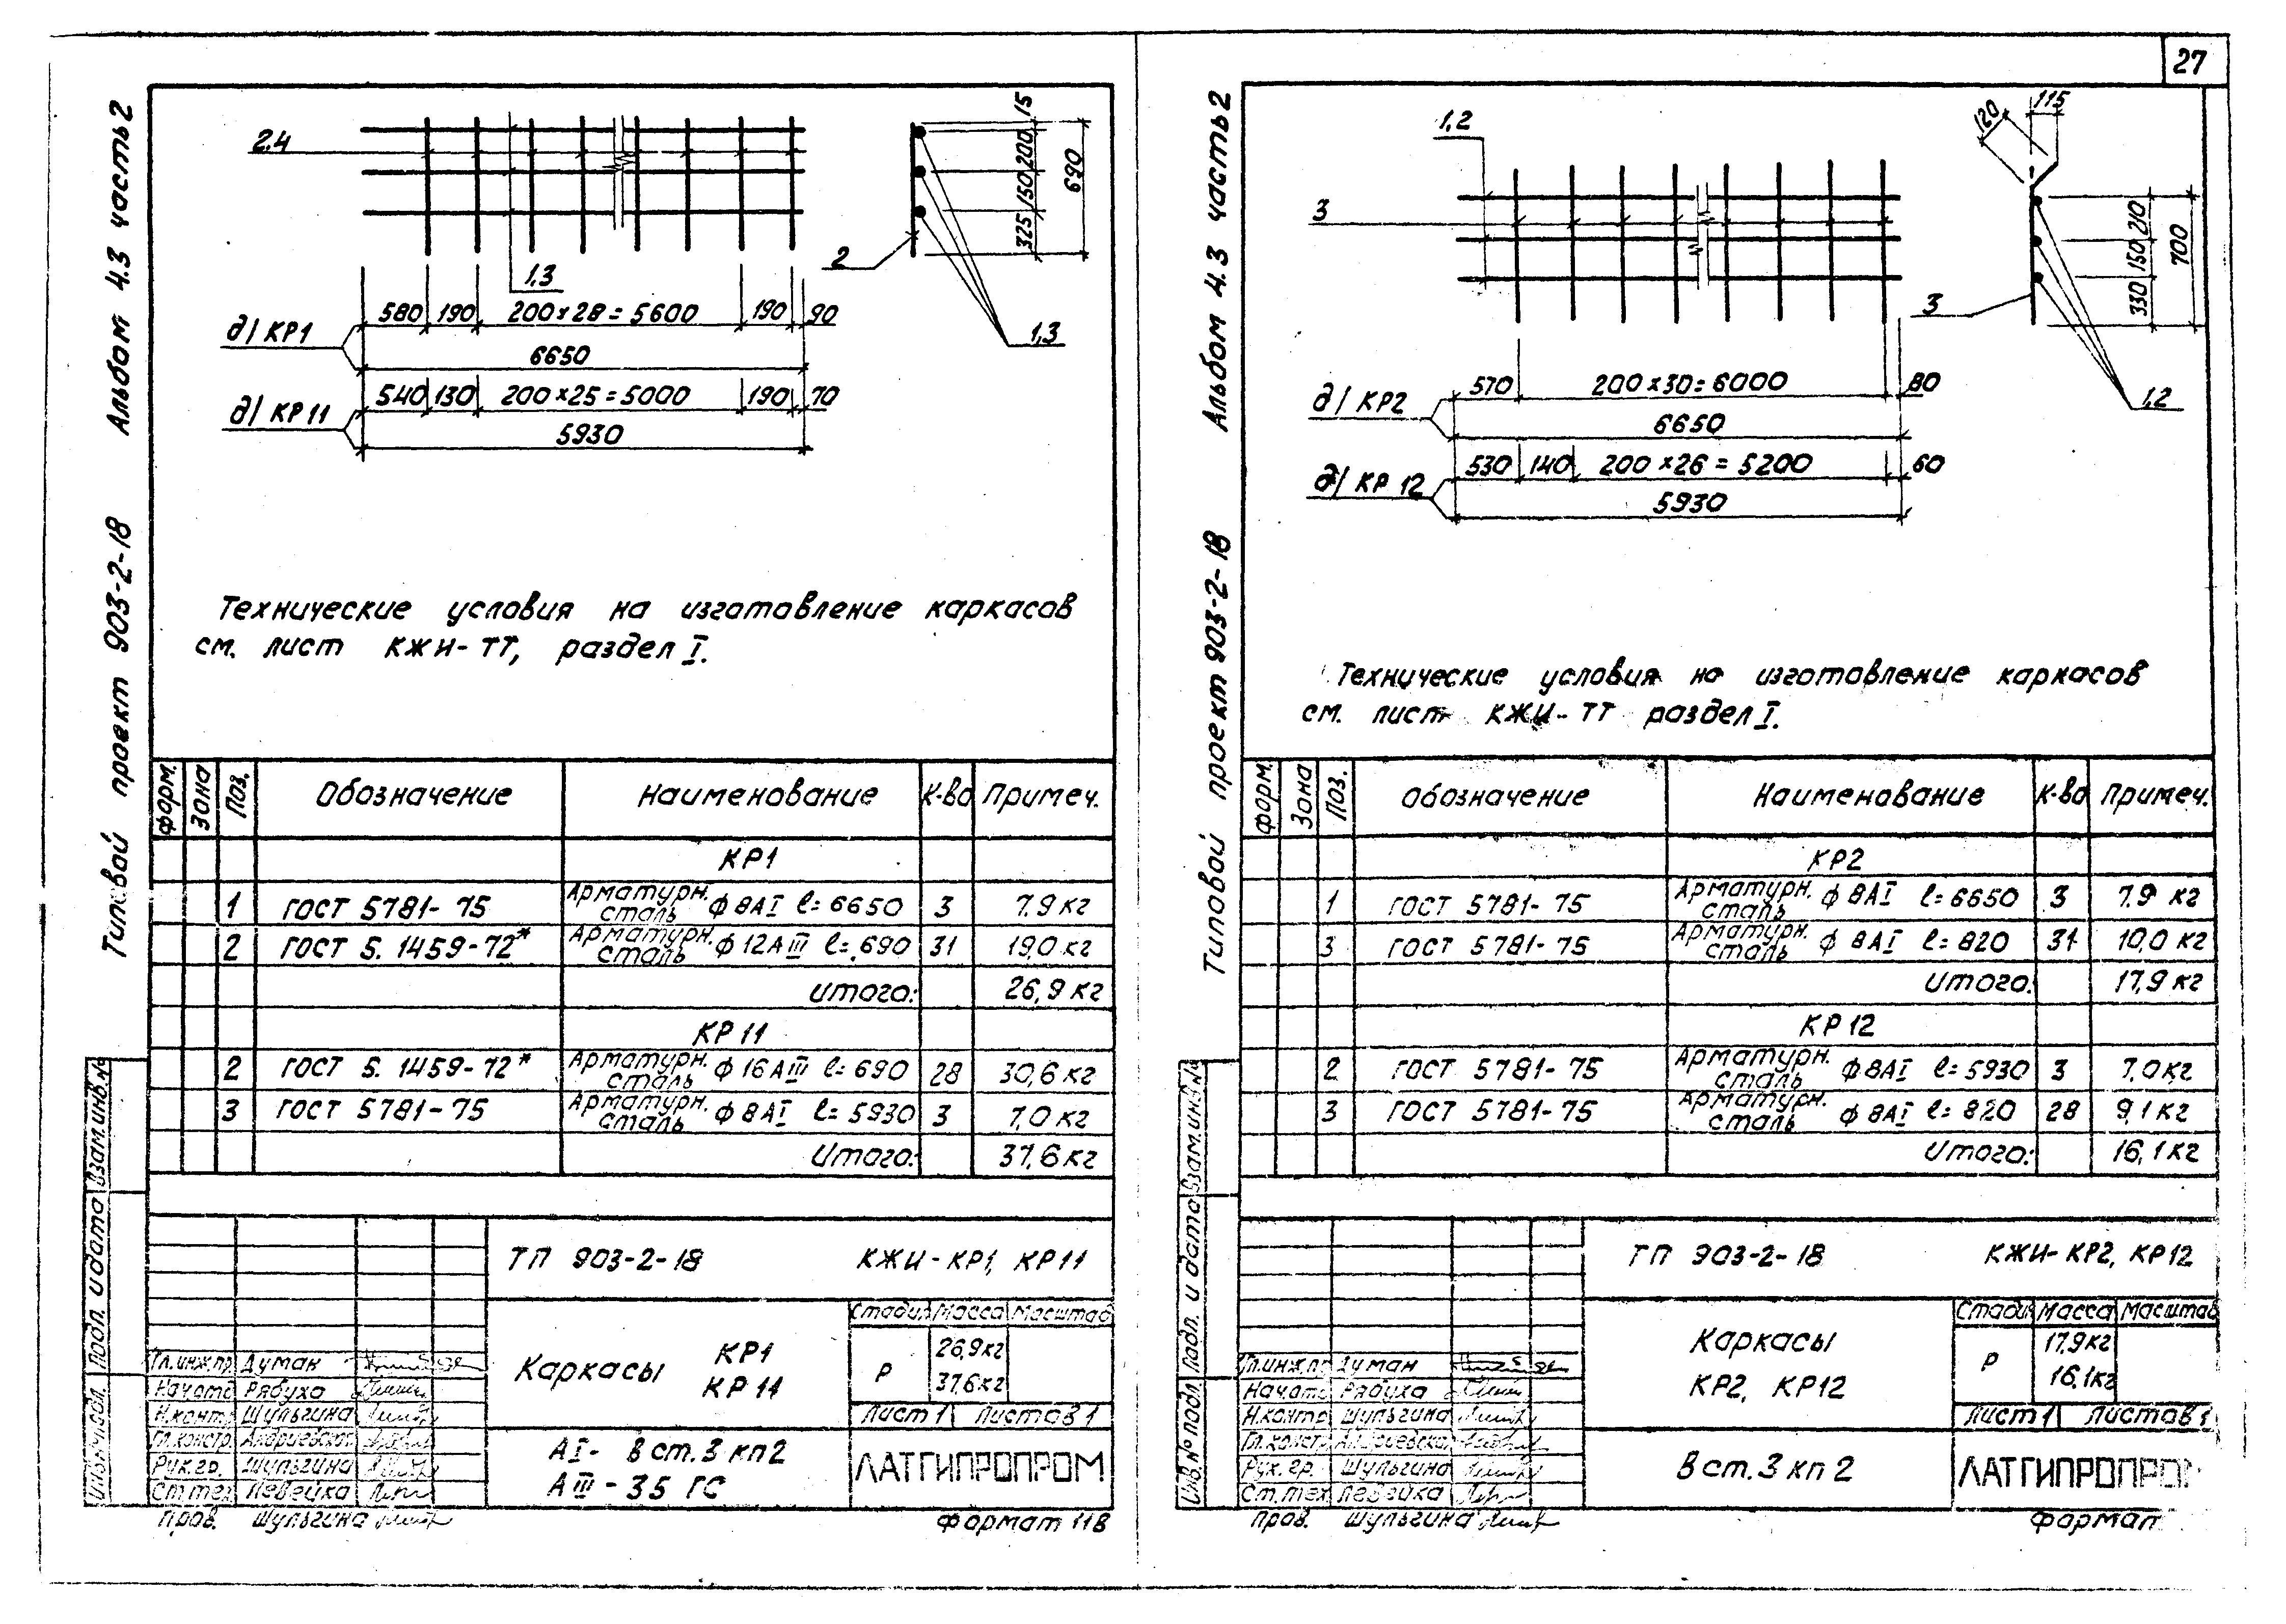 27
Альбом 4.3 часть 2
Типовой проект 903-2-18
2.4
1,3
2
1,3
15
200
150
325
690
д/ КР1
580 190 200×28=5600 190 90
6650
д/ КР11
540 130 200×25=5000 190 70
5930
Технические условия на изготовление каркасов
см. лист КЖИ-ТТ, раздел I.
Форм. Зона Поз. Обозначение Наименование К-во Примеч.
КР1
1 ГОСТ 5781-75 Арматурн. сталь ф 8АI l=6650 3 7.9 кг
2 ГОСТ 5.1459-72* Арматурн. сталь ф 12АIII l=690 31 19,0 кг
Итого: 26,9 кг
КР 11
2 ГОСТ 5.1459-72* Арматурн. сталь ф 16АIII l=690 28 30,6 кг
3 ГОСТ 5781-75 Арматурн. сталь ф 8АI l=5930 3 7,0 кг
Итого: 37,6 кг
Взам.инв.№
Подп. и дата
ТП 903-2-18 КЖИ-КР1, КР11
Каркасы КР1
КР 11
Стадия Масса Масштаб
Р 26,9кг
37,6кг
Лист 1 Листов 1
Гл.инж.пр. Думан
Нач.отд Рябуха
Н.контр Шульгина
Гл.констр
Рук.гр. Шульгина
Ст.тех Левейка
Пров. Шульгина
АI- В ст.3 кп2
АIII - 35 ГС
ЛАТГИПРОПРОМ
Формат 11В
Альбом 4.3 часть 2
Типовой проект 903-2-18
1,2
3
3
1,2
120
115
210
150
330
700
д/ КР2
570 200×30=6000 80
6650
д/ КР 12
530 140 200×26=5200 60
5930
Технические условия на изготовление каркасов
см. лист КЖИ-ТТ раздел I.
Форм. Зона Поз. Обозначение Наименование К-во Примеч.
КР2
1 ГОСТ 5781-75 Арматурн. сталь ф 8АI l=6650 3 7.9 кг
3 ГОСТ 5781-75 Арматурн. сталь ф 8АI l=820 31 10,0 кг
Итого: 17,9 кг
КР 12
2 ГОСТ 5781-75 Арматурн. сталь ф 8АI l=5930 3 7.0кг
3 ГОСТ 5781-75 Арматурн. сталь ф 8АI l=820 28 9,1 кг
Итого: 16,1 кг
Взам.инв.№
Подп. и дата
Инв.№ подл.
ТП 903-2-18 КЖИ-КР2, КР12
Каркасы
КР2, КР12
Стадия Масса Масштаб
Р 17,9кг
16,1кг
Лист 1 Листов 1
Гл.инж.пр Думан
Нач.отд Рябуха
Н.контр Шульгина
Гл.констр
Рук.гр. Шульгина
Ст.тех Левейка
Пров. Шульгина
В ст.3 кп 2
ЛАТГИПРОПРОМ
Формат